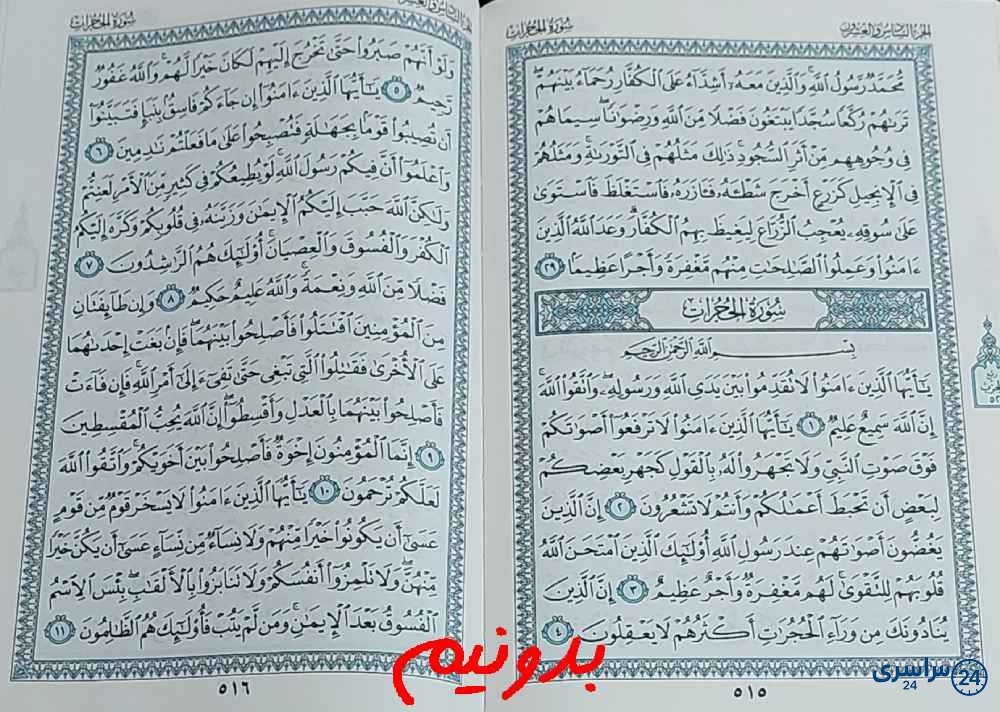 الجزء السادس والعشرون
سورة الحجرات
مُّحَمَّدٌ رَّسُولُ ٱللَّهِ وَٱلَّذِينَ مَعَهُۥٓ أَشِدَّآءُ عَلَى ٱلْكُفَّارِ رُحَمَآءُ بَيْنَهُمْ
تَرَىٰهُمْ رُكَّعًا سُجَّدًا يَبْتَغُونَ فَضْلًا مِّنَ ٱللَّهِ وَرِضْوَٰنًا سِيمَاهُمْ
فِى وُجُوهِهِم مِّنْ أَثَرِ ٱلسُّجُودِ ذَٰلِكَ مَثَلُهُمْ فِى ٱلتَّوْرَىٰةِ وَمَثَلُهُمْ
فِى ٱلْإِنجِيلِ كَزَرْعٍ أَخْرَجَ شَطْـَٔهُۥ فَـَٔازَرَهُۥ فَٱسْتَغْلَظَ فَٱسْتَوَىٰ
عَلَىٰ سُوقِهِۦ يُعْجِبُ ٱلزُّرَّاعَ لِيَغِيظَ بِهِمُ ٱلْكُفَّارَ وَعَدَ ٱللَّهُ ٱلَّذِينَ
ءَامَنُوا۟ وَعَمِلُوا۟ ٱلصَّٰلِحَٰتِ مِنْهُم مَّغْفِرَةً وَأَجْرًا عَظِيمًۢا ٢٩
سُورَةُ الحُجُرَاتِ
بِسْمِ ٱللَّهِ ٱلرَّحْمَٰنِ ٱلرَّحِيمِ
يَٰٓأَيُّهَا ٱلَّذِينَ ءَامَنُوا۟ لَا تُقَدِّمُوا۟ بَيْنَ يَدَىِ ٱللَّهِ وَرَسُولِهِۦ وَٱتَّقُوا۟ ٱللَّهَ
إِنَّ ٱللَّهَ سَمِيعٌ عَلِيمٌ ١ يَٰٓأَيُّهَا ٱلَّذِينَ ءَامَنُوا۟ لَا تَرْفَعُوٓا۟ أَصْوَٰتَكُمْ
فَوْقَ صَوْتِ ٱلنَّبِىِّ وَلَا تَجْهَرُوا۟ لَهُۥ بِٱلْقَوْلِ كَجَهْرِ بَعْضِكُمْ
لِبَعْضٍ أَن تَحْبَطَ أَعْمَٰلُكُمْ وَأَنتُمْ لَا تَشْعُرُونَ ٢ إِنَّ ٱلَّذِينَ
يَغُضُّونَ أَصْوَٰتَهُمْ عِندَ رَسُولِ ٱللَّهِ أُو۟لَٰٓئِكَ ٱلَّذِينَ ٱمْتَحَنَ ٱللَّهُ
قُلُوبَهُمْ لِلتَّقْوَىٰ لَهُم مَّغْفِرَةٌ وَأَجْرٌ عَظِيمٌ ٣ إِنَّ ٱلَّذِينَ
يُنَادُونَكَ مِن وَرَآءِ ٱلْحُجُرَٰتِ أَكْثَرُهُمْ لَا يَعْقِلُونَ ٤
٥١٥
الجزء السادس والعشرون
سورة الحجرات
وَلَوْ أَنَّهُمْ صَبَرُوا۟ حَتَّىٰ تَخْرُجَ إِلَيْهِمْ لَكَانَ خَيْرًا لَّهُمْ وَٱللَّهُ غَفُورٌ
رَّحِيمٌ ٥ يَٰٓأَيُّهَا ٱلَّذِينَ ءَامَنُوٓا۟ إِن جَآءَكُمْ فَاسِقٌۢ بِنَبَإٍ فَتَبَيَّنُوٓا۟
أَن تُصِيبُوا۟ قَوْمًۢا بِجَهَٰلَةٍ فَتُصْبِحُوا۟ عَلَىٰ مَا فَعَلْتُمْ نَٰدِمِينَ ٦
وَٱعْلَمُوٓا۟ أَنَّ فِيكُمْ رَسُولَ ٱللَّهِ لَوْ يُطِيعُكُمْ فِى كَثِيرٍ مِّنَ ٱلْأَمْرِ لَعَنِتُّمْ
وَلَٰكِنَّ ٱللَّهَ حَبَّبَ إِلَيْكُمُ ٱلْإِيمَٰنَ وَزَيَّنَهُۥ فِى قُلُوبِكُمْ وَكَرَّهَ إِلَيْكُمُ
ٱلْكُفْرَ وَٱلْفُسُوقَ وَٱلْعِصْيَانَ أُو۟لَٰٓئِكَ هُمُ ٱلرَّٰشِدُونَ ٧
فَضْلًا مِّنَ ٱللَّهِ وَنِعْمَةً وَٱللَّهُ عَلِيمٌ حَكِيمٌ ٨ وَإِن طَآئِفَتَانِ
مِنَ ٱلْمُؤْمِنِينَ ٱقْتَتَلُوا۟ فَأَصْلِحُوا۟ بَيْنَهُمَا فَإِنۢ بَغَتْ إِحْدَىٰهُمَا
عَلَى ٱلْأُخْرَىٰ فَقَٰتِلُوا۟ ٱلَّتِى تَبْغِى حَتَّىٰ تَفِىٓءَ إِلَىٰٓ أَمْرِ ٱللَّهِ فَإِن فَآءَتْ
فَأَصْلِحُوا۟ بَيْنَهُمَا بِٱلْعَدْلِ وَأَقْسِطُوٓا۟ إِنَّ ٱللَّهَ يُحِبُّ ٱلْمُقْسِطِينَ
٩ إِنَّمَا ٱلْمُؤْمِنُونَ إِخْوَةٌ فَأَصْلِحُوا۟ بَيْنَ أَخَوَيْكُمْ وَٱتَّقُوا۟ ٱللَّهَ
لَعَلَّكُمْ تُرْحَمُونَ ١٠ يَٰٓأَيُّهَا ٱلَّذِينَ ءَامَنُوا۟ لَا يَسْخَرْ قَوْمٌ مِّن قَوْمٍ
عَسَىٰٓ أَن يَكُونُوا۟ خَيْرًا مِّنْهُمْ وَلَا نِسَآءٌ مِّن نِّسَآءٍ عَسَىٰٓ أَن يَكُنَّ خَيْرًا
مِّنْهُنَّ وَلَا تَلْمِزُوٓا۟ أَنفُسَكُمْ وَلَا تَنَابَزُوا۟ بِٱلْأَلْقَٰبِ بِئْسَ ٱلِٱسْمُ
ٱلْفُسُوقُ بَعْدَ ٱلْإِيمَٰنِ وَمَن لَّمْ يَتُبْ فَأُو۟لَٰٓئِكَ هُمُ ٱلظَّٰلِمُونَ ١١
٥١٦
بدونیم
سراسری 24
24